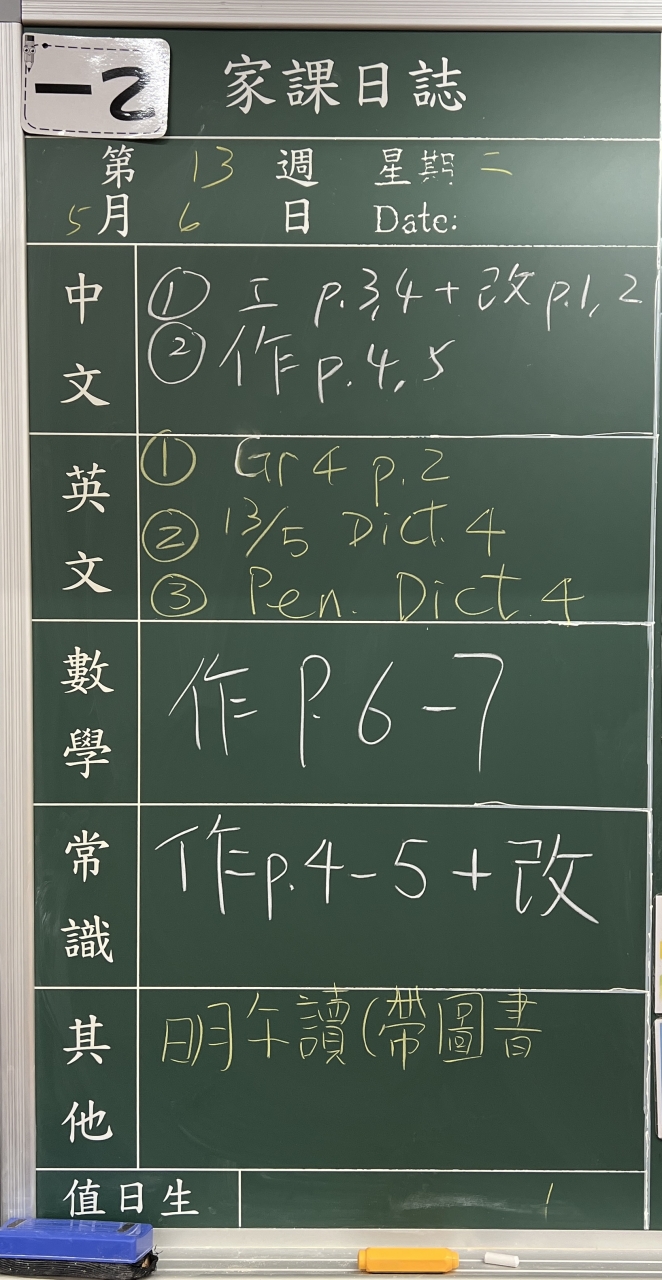 一乙
家課日誌
第 13 週 星期 二
5 月 6 日 Date:
中文
① 工 p.3,4 + 改 p.1,2
② 作 p.4,5
英文
① Gr 4 p.2
② 13/5 Dict. 4
③ Pen. Dict. 4
數學
作 P.6-7
常識
作 p.4-5 + 改
其他
明午讀(帶圖書
值日生 1